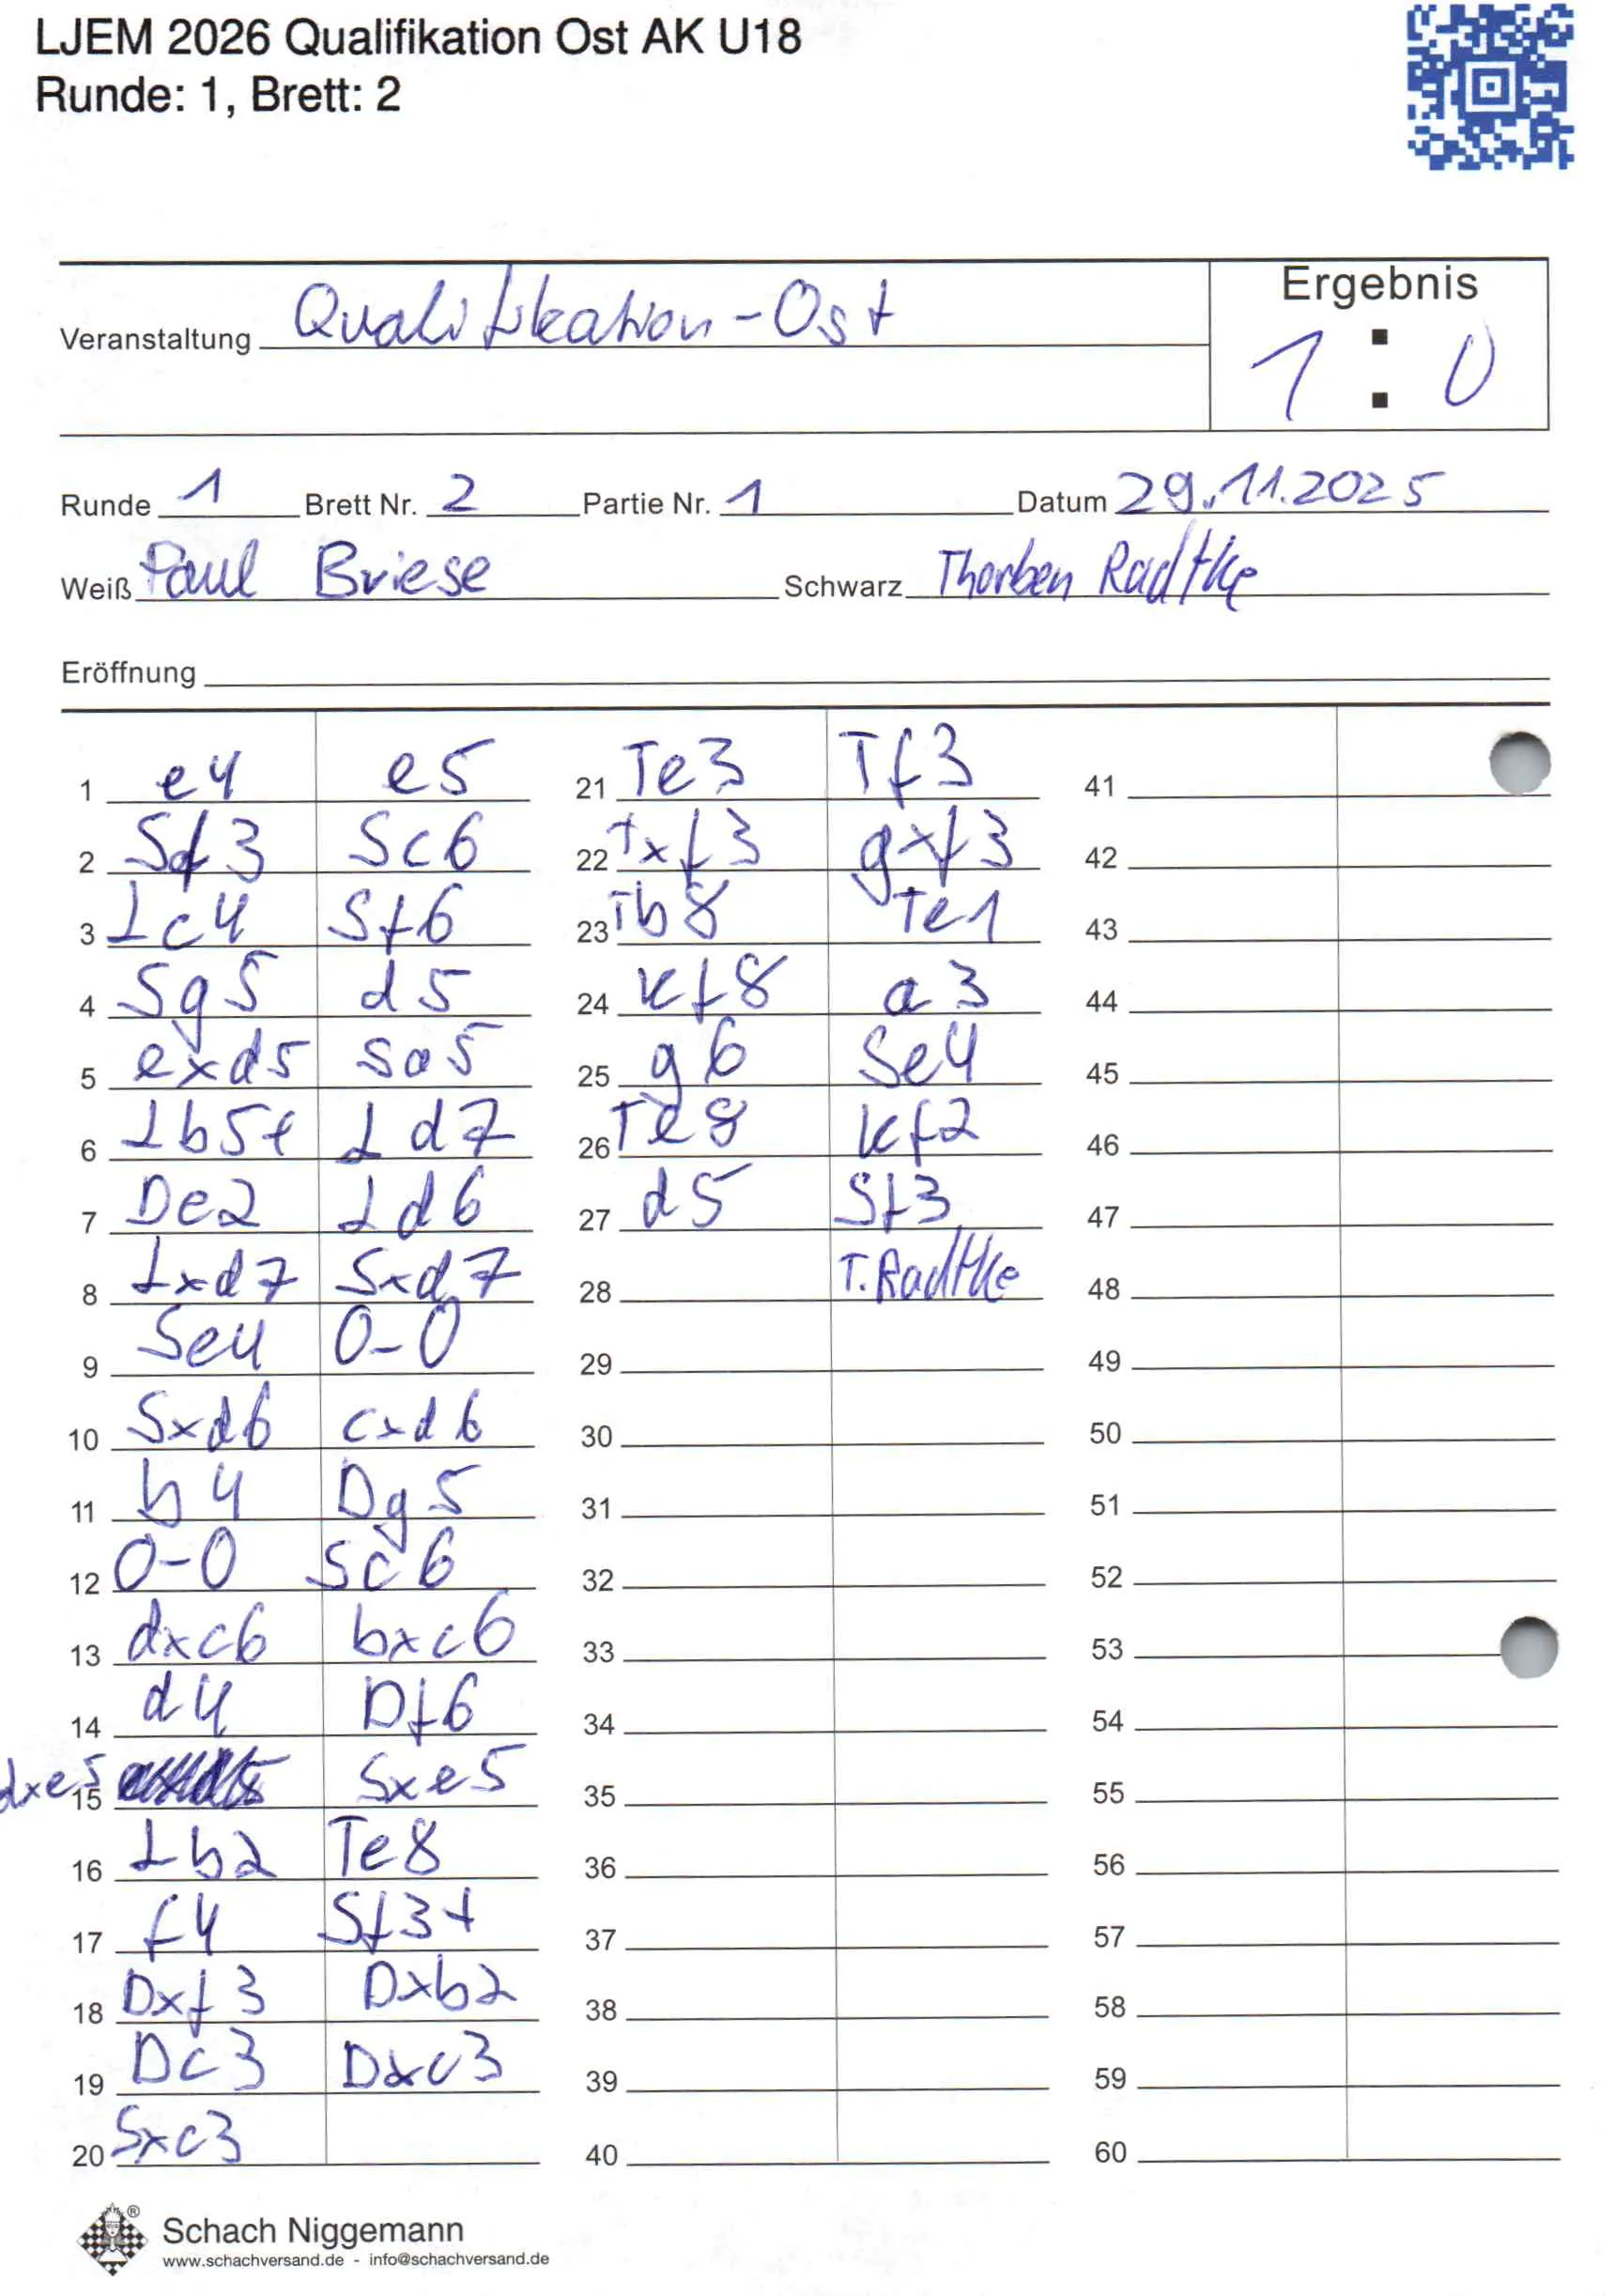 LJEM 2026 Qualifikation Ost AK U18
Runde: 1, Brett: 2
Veranstaltung Qualifikation-Ost
Ergebnis
1 : 0
Runde 1 Brett Nr. 2 Partie Nr. 1 Datum 29.11.2025
Weiß Paul Briese Schwarz Thorben Radtke
Eröffnung
1 e4 e5
2 Sf3 Sc6
3 Lc4 Sf6
4 Sg5 d5
5 exd5 Sa5
6 Lb5+ Ld7
7 De2 Ld6
8 Lxd7 Sxd7
9 Se4 0-0
10 Sxd6 cxd6
11 b4 Dg5
12 0-0 Sc6
13 dxc6 bxc6
14 d4 Df6
15 dxe5 Sxe5
16 Lb2 Te8
17 f4 Sf3+
18 Dxf3 Dxb2
19 Dc3 Dxc3
20 Sxc3
21 Te3 Tf3
22 Txf3 gxf3
23 Tb8 Te1
24 Kf8 a3
25 g6 Se4
26 Te8 Kf2
27 d5 Sf3
28 T. Radtke
29
30
31
32
33
34
35
36
37
38
39
40
41
42
43
44
45
46
47
48
49
50
51
52
53
54
55
56
57
58
59
60
Schach Niggemann
www.schachversand.de - info@schachversand.de